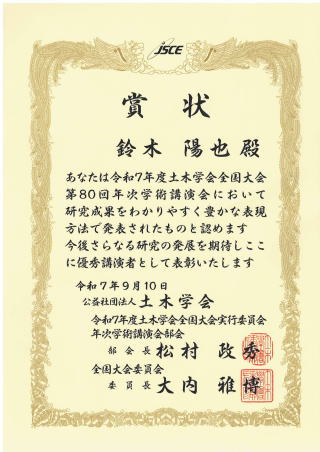 JSCE
賞状
鈴木 陽也 殿
あなたは令和7年度土木学会全国大会
第80回年次学術講演会において
研究成果をわかりやすく豊かな表現
方法で発表されたものと認めます
今後さらなる研究の発展を期待しここ
に優秀講演者として表彰いたします
令和7年9月10日
公益社団法人 土木学会
令和7年度土木学会全国大会実行委員会
年次学術講演会部会
部会長 松村 政秀
全国大会委員会
委員長 大内 雅博